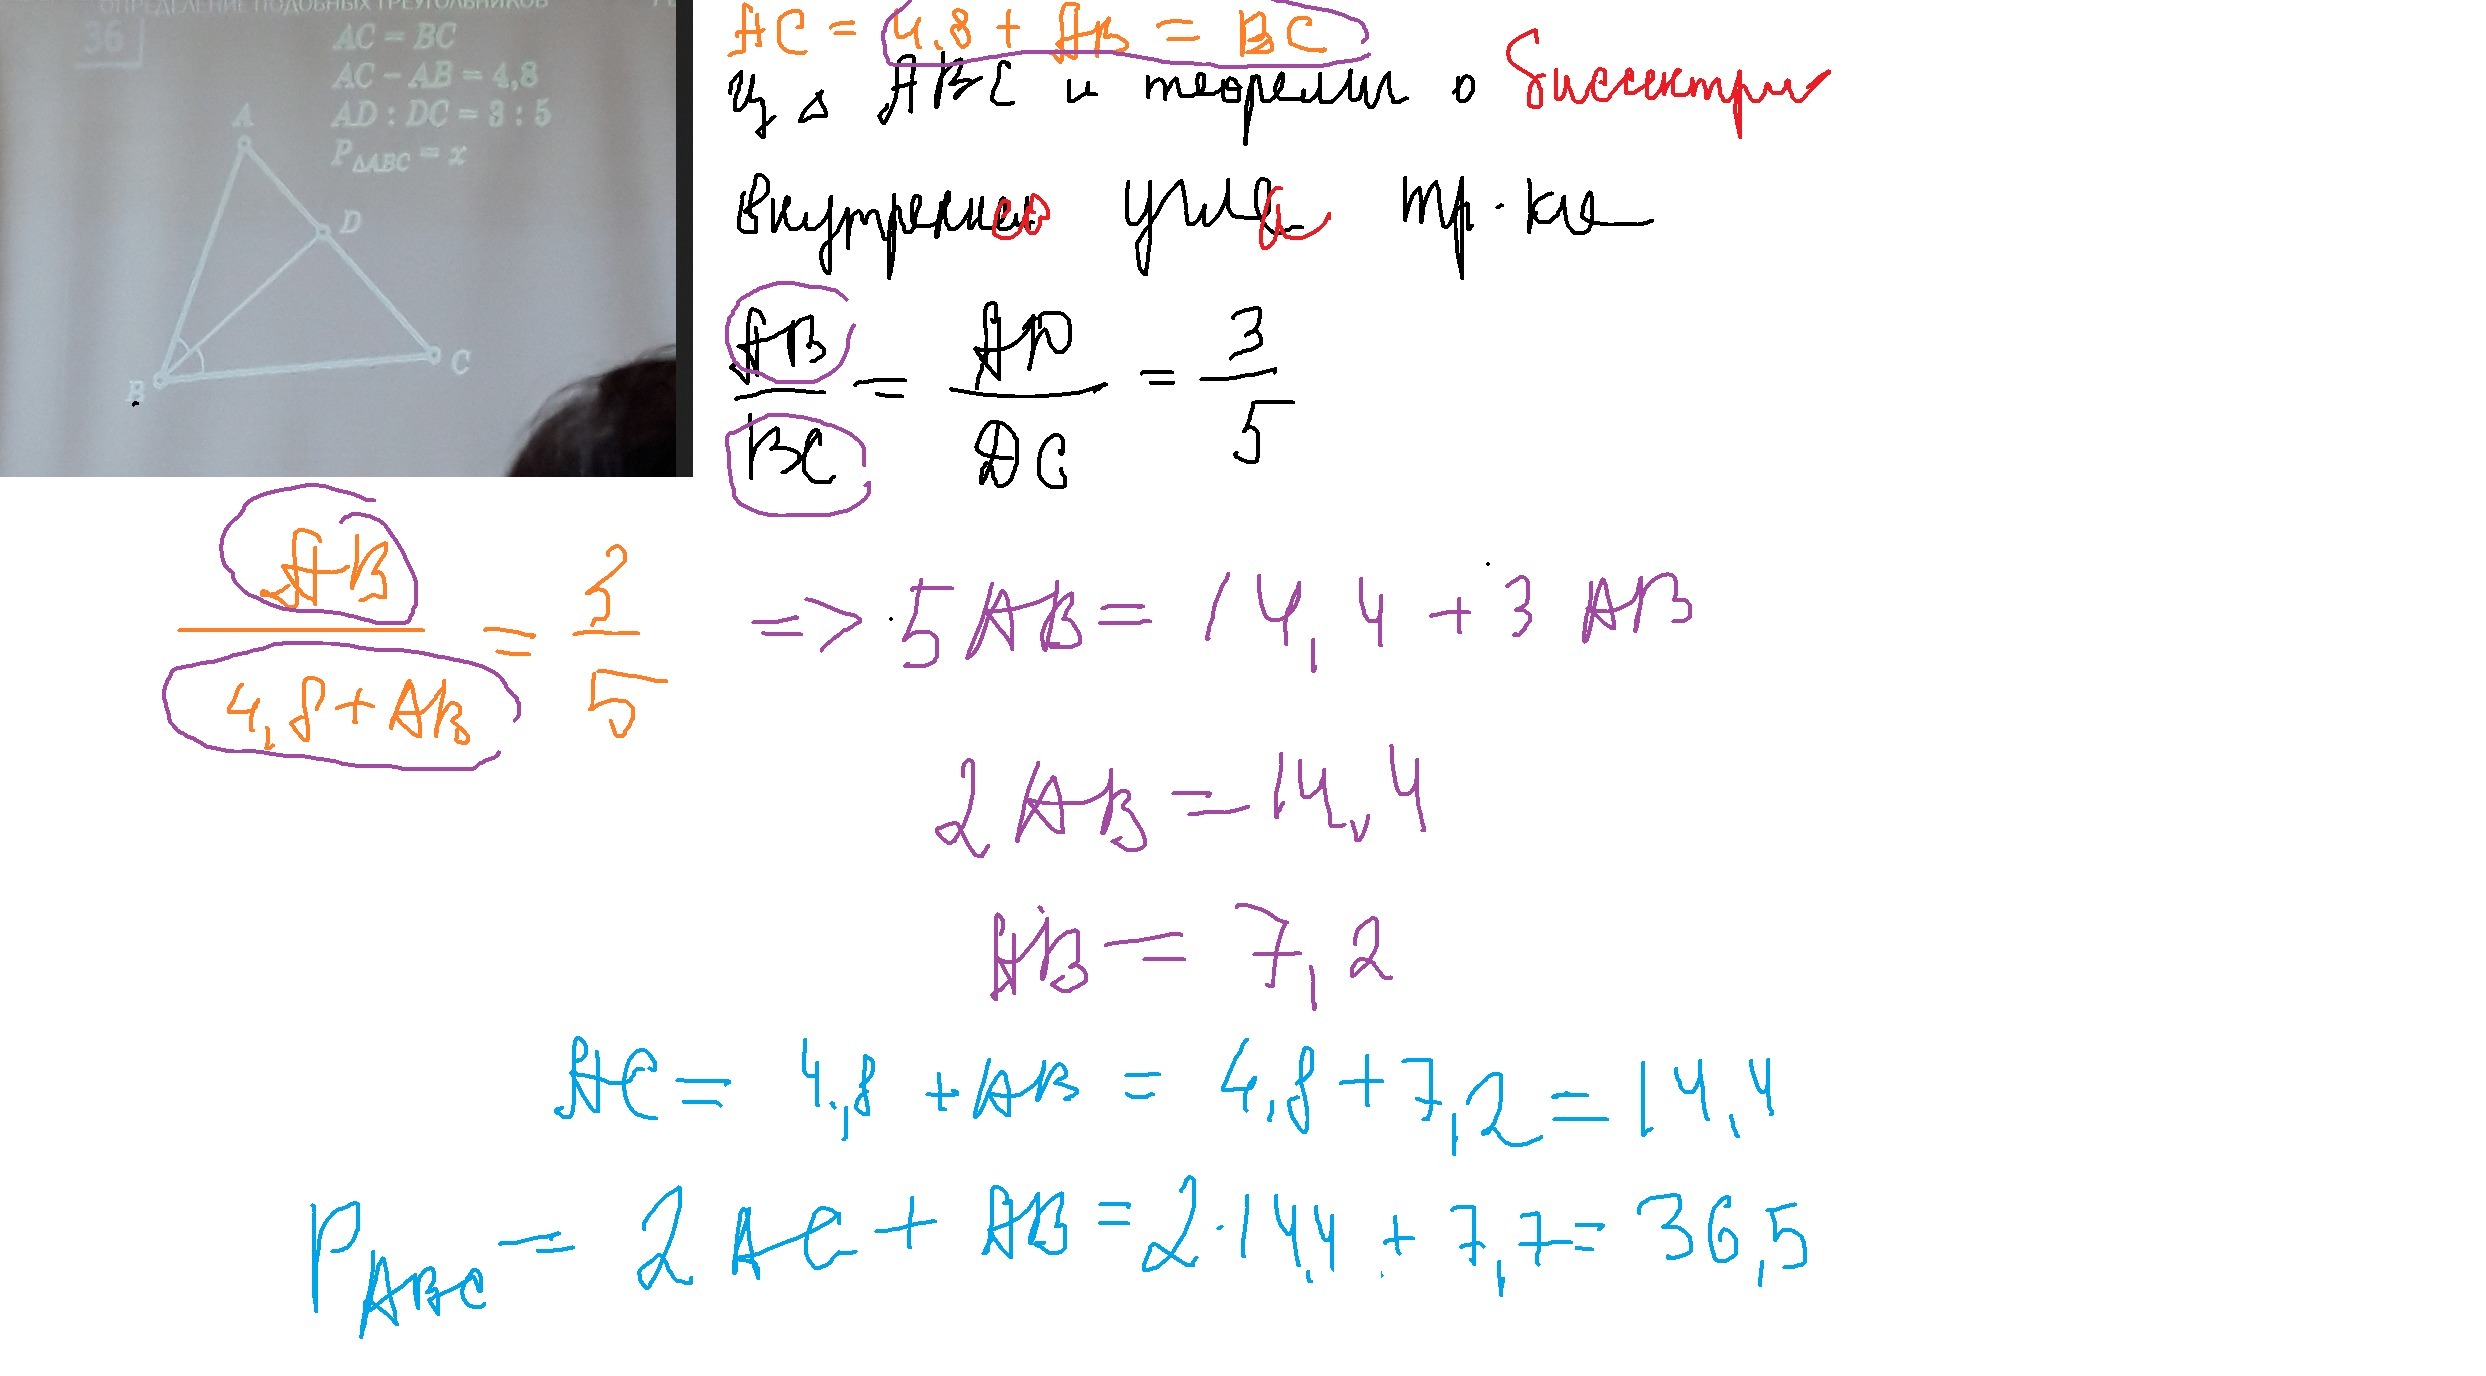 ОПРЕДЕЛЕНИЕ ПОДОБНЫХ ТРЕУГОЛЬНИКОВ
36
AC = BC
AC − AB = 4,8
AD : DC = 3 : 5
P△ABC = x
A
D
B
C
AC = 4.8 + AB = BC
Из △ ABC и теоремы о биссектри
внутренего угла тр-ка
AB/BC = AD/DC = 3/5
AB/(4,8 + AB) = 3/5 => 5 AB = 14,4 + 3 AB
2 AB = 14,4
AB = 7,2
AC = 4,8 + AB = 4,8 + 7,2 = 14,4
P ABC = 2 AC + AB = 2·14,4 + 7,7 = 36,5